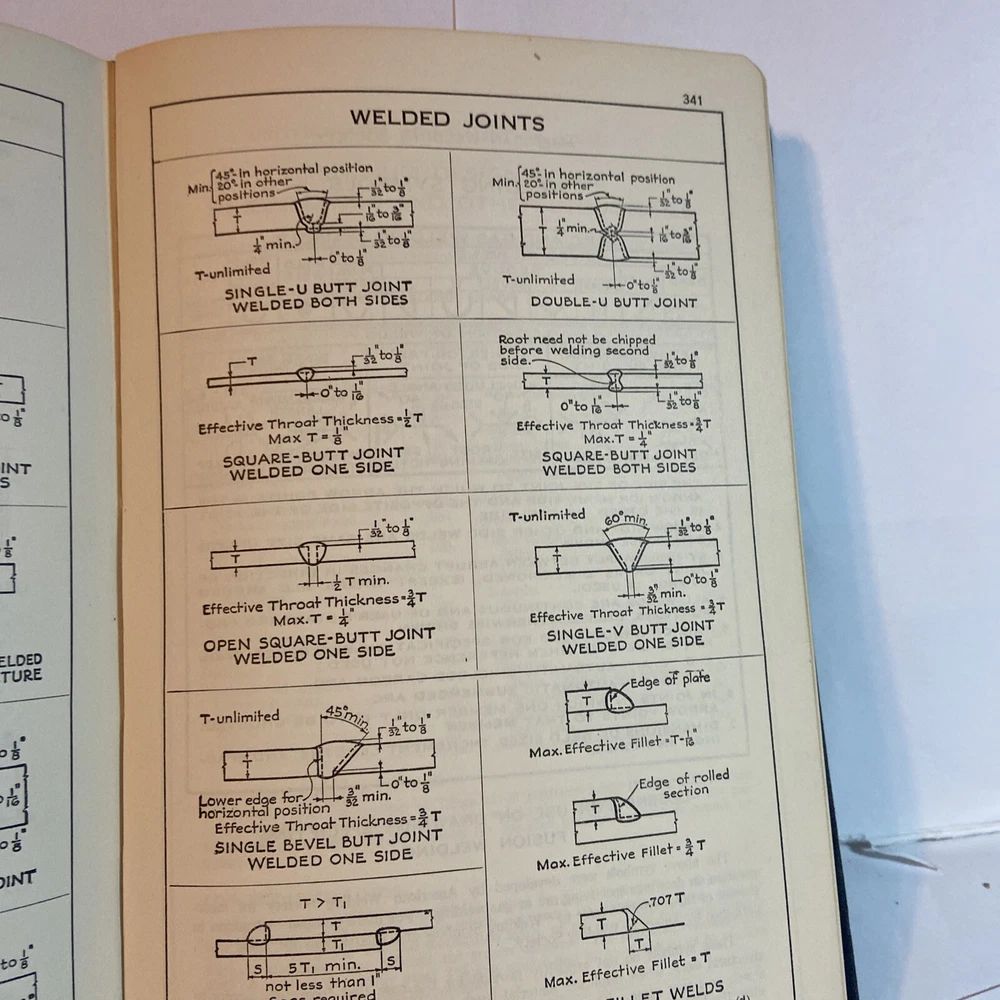 341
WELDED JOINTS
Min.
45°-in horizontal position
20°-in other
positions
1/32" to 1/8"
T
1/16" to 3/16"
1/4" min.
1/32" to 1/8"
0" to 1/8"
T-unlimited
SINGLE-U BUTT JOINT
WELDED BOTH SIDES
Min.
45°-in horizontal position
20°-in other
positions
1/32" to 1/8"
T
1/4" min.
1/16" to 3/16"
1/32" to 1/8"
T-unlimited
0" to 1/8"
DOUBLE-U BUTT JOINT
T
1/32" to 1/8"
0" to 1/16"
Effective Throat Thickness = 1/2 T
Max T = 1/8"
SQUARE-BUTT JOINT
WELDED ONE SIDE
Root need not be chipped
before welding second
side.
1/32" to 1/8"
T
0" to 1/16"
1/32" to 1/8"
Effective Throat Thickness = 3/4 T
Max. T = 1/4"
SQUARE-BUTT JOINT
WELDED BOTH SIDES
1/32" to 1/8"
T
1/2 T min.
Effective Throat Thickness = 3/4 T
Max. T = 1/4"
OPEN SQUARE-BUTT JOINT
WELDED ONE SIDE
T-unlimited
60° min.
1/32" to 1/8"
T
0" to 1/8"
3/32" min.
Effective Throat Thickness = 3/4 T
SINGLE-V BUTT JOINT
WELDED ONE SIDE
T-unlimited
45° min.
1/32" to 1/8"
T
0" to 1/8"
3/32" min.
Lower edge for
horizontal position
Effective Throat Thickness = 3/4 T
SINGLE BEVEL BUTT JOINT
WELDED ONE SIDE
Edge of plate
T
Max. Effective Fillet = T - 1/16"
Edge of rolled
section
T
Max. Effective Fillet = 3/4 T
.707 T
T
T
Max. Effective Fillet = T
FILLET WELDS
T > T₁
T
T₁
S
5T₁ min.
S
not less than 1"
required